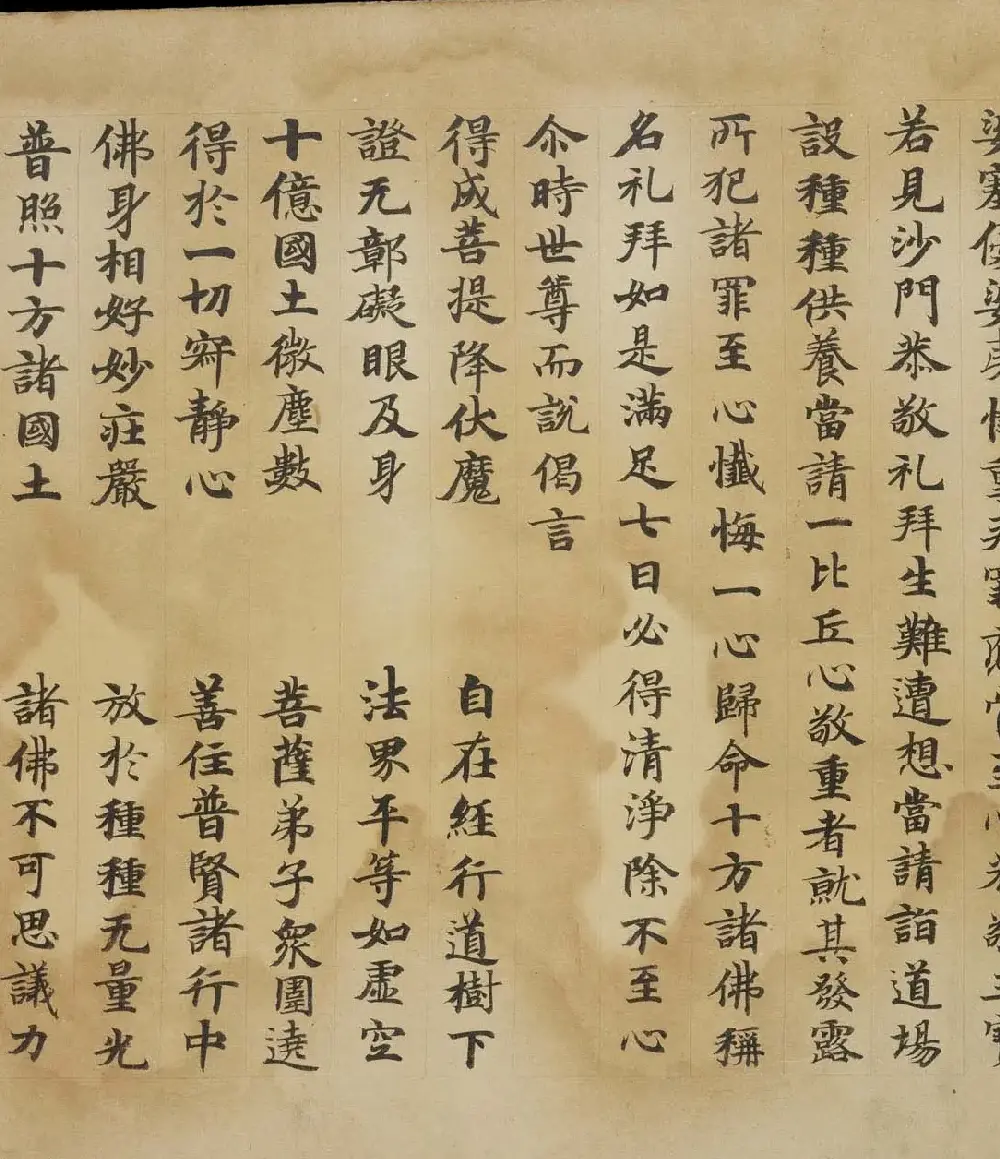 婆塞優婆夷懺重
若見沙門恭敬礼拜生難遭想當請詣道場
設種種供養當請一比丘心敬重者就其發露
所犯諸罪至心懺悔一心歸命十方諸佛稱
名礼拜如是滿足七日必得清淨除不至心
尒時世尊而說偈言
得成菩提降伏魔　自在經行道樹下
證无鄣礙眼及身　法界平等如虛空
十億國土微塵數　菩薩弟子衆圍遶
得於一切寂靜心　善住普賢諸行中
佛身相好妙莊嚴　放於種種无量光
普照十方諸國土　諸佛不可思議力